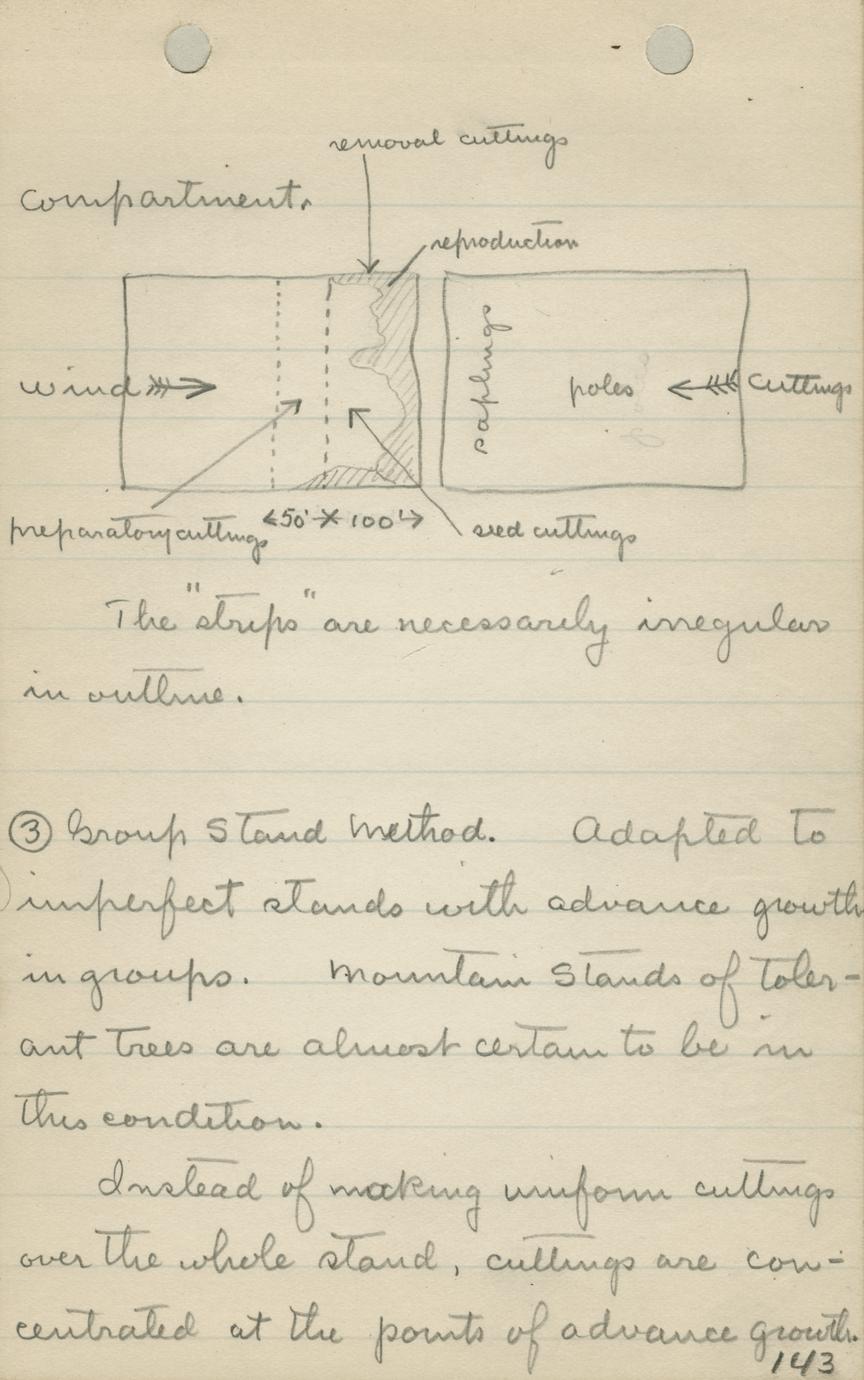 removal cuttings
compartment.
reproduction
wind
saplings
poles
cuttings
preparatory cuttings
50' 100'
seed cuttings
The "strips" are necessarily irregular
in outline.
③ Group Stand Method. Adapted to
imperfect stands with advance growth
in groups. Mountain Stands of toler-
ant trees are almost certain to be in
this condition.
Instead of making uniform cuttings
over the whole stand, cuttings are con-
centrated at the points of advance growth.
143